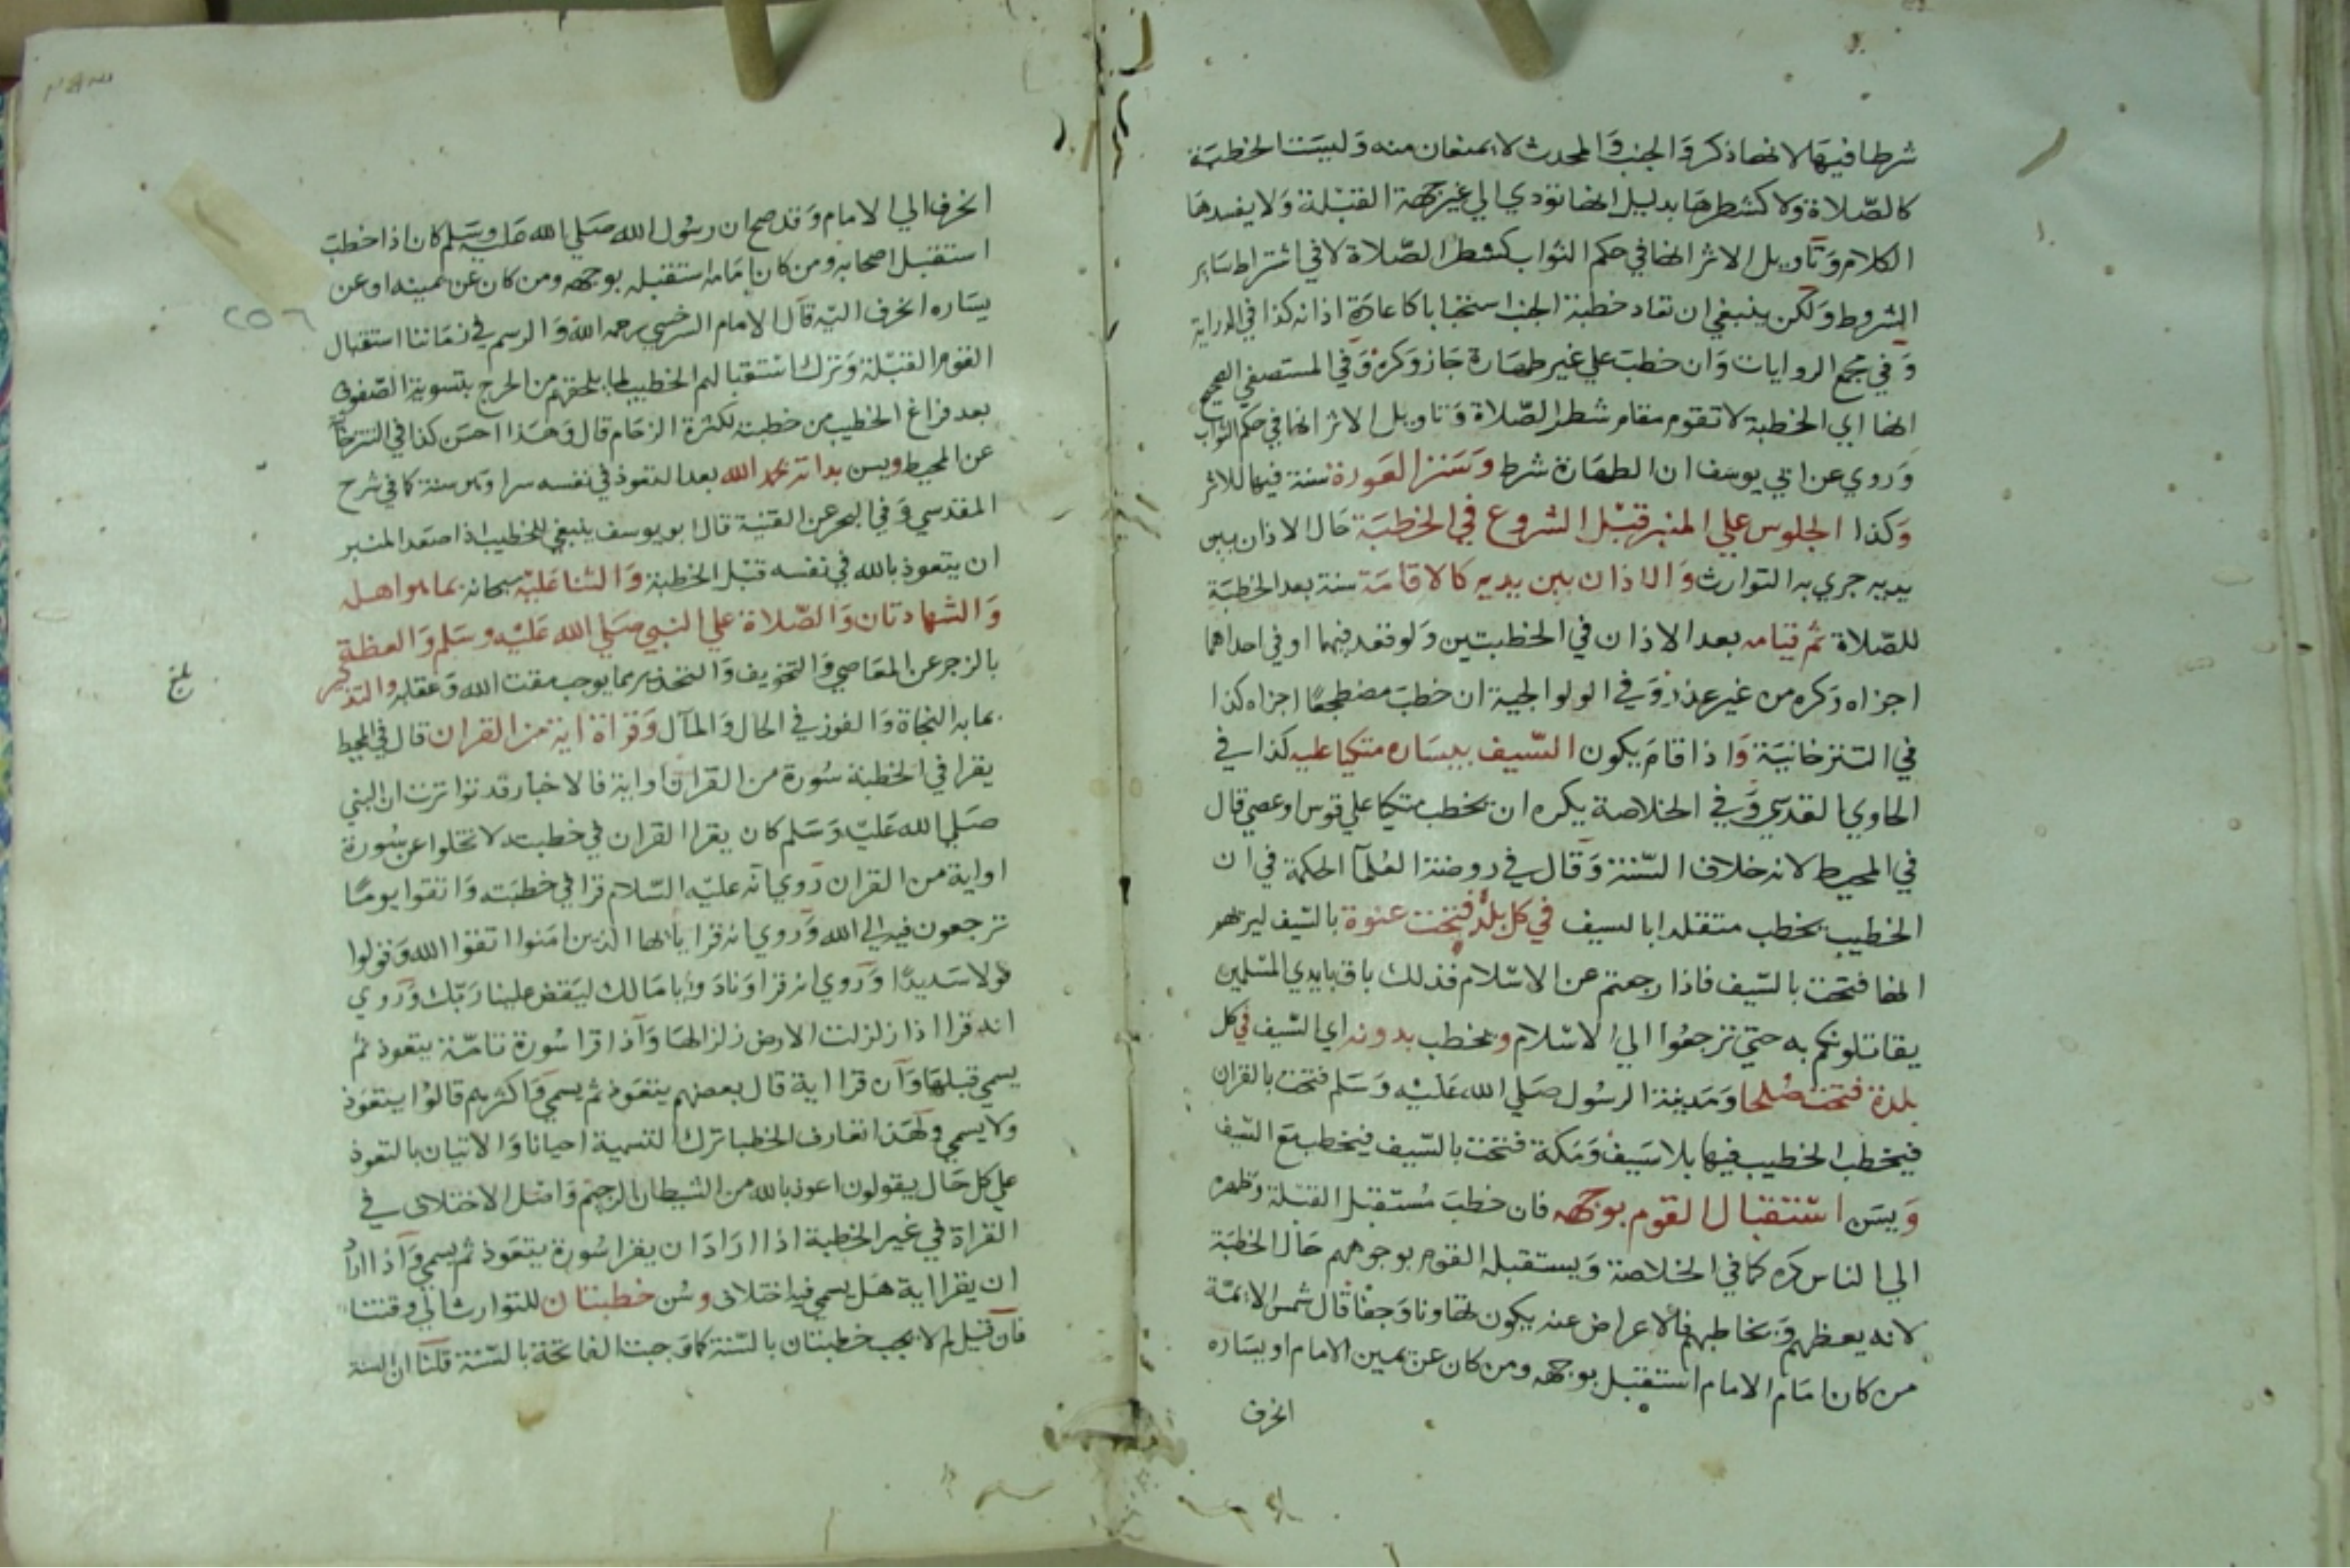 شرطا فيها لانها ذكر والجنب والمحدث لا يمنعان منه وليست الخطبة
كالصلاة ولا كشطرها بدليل انها تؤدي الي غير جهة القبلة ولا يفسدها
الكلام وتاويل الاثر انها في حكم الثواب كشطر الصلاة لا في اشتراط ساير
الشروط ولكن ينبغي ان تعاد خطبة الجنب استحبابا كاعادة اذانه كذا في الدراية
وفي مجمع الروايات وان خطب علي غير طهارة جاز وكره وفي المستصفي الصحيح
انها اي الخطبة لا تقوم مقام شطر الصلاة وتاويل الاثر انها في حكم الثواب
وروي عن ابي يوسف ان الطهارة شرط وستر العورة سنة فيها للاثر
وكذا الجلوس علي المنبر قبل الشروع في الخطبة حال الاذان بين
يديه جري به التوارث والاذان بين يديه كالاقامة سنة بعد الخطبة
للصلاة ثم قيامه بعد الاذان في الخطبتين ولو قعد فيهما او في احداهما
اجزاه وكره من غير عذر وفي الولوالجية ان خطب مضطجعا اجزاه كذا
في التترخانية واذا قام يكون السيف بيساره متكيا عليه كذا في
الحاوي القدسي وفي الخلاصة يكره ان يخطب متكيا علي قوس او عصي قال
في المحيط لانه خلاف السنة وقال في روضة العلمآ الحكمة في ان
الخطيب يخطب متقلدا بالسيف في كل بلد فتحت عنوة بالسيف ليرتهو
انها فتحت بالسيف فاذا رجعتم عن الاسلام فذلك باق بايدي المسلمين
يقاتلونكم به حتي ترجعوا الي الاسلام ويخطب بدونه اي السيف في كل
بلدة فتحت صلحا ومدينة الرسول صلي الله عليه وسلم فتحت بالقران
فيخطب الخطيب فيها بلا سيف ومكة فتحت بالسيف فيخطب مع السيف
ويسن استقبال القوم بوجهه فان خطب مستقبل القبلة وظهره
الي الناس كره كما في الخلاصة ويستقبله القوم بوجوههم حال الخطبة
لانه يعظهم ويخاطبهم فالاعراض عنه يكون تهاونا وجفآ قال شمس الايمة
من كان امام الامام استقبل بوجهه ومن كان عن يمين الامام او يساره
انحرف
انحرف الي الامام وقد صح ان رسول الله صلي الله عليه وسلم كان اذا خطب
استقبل اصحابه ومن كان امامه استقبله بوجهه ومن كان عن يمينه او عن
يساره انحرف اليه قال الامام السرخسي رحمه الله والرسم في زماننا استقبال
القوم القبلة وترك استقبالهم الخطيب لما يلحقهم من الحرج بتسوية الصفوف
بعد فراغ الخطيب من خطبته لكثرة الزحام قال وهذا احسن كذا في التترخا
عن المحيط ويسن بداته بحمد الله بعد التعوذ في نفسه سرا وهو سنة كما في شرح
المقدسي وفي البحر عن القنية قال ابو يوسف ينبغي للخطيب اذا صعد المنبر
ان يتعوذ بالله في نفسه قبل الخطبة والثنا عليه سبحانه بما هو اهله
والشهادتان والصلاة علي النبي صلي الله عليه وسلم والعظة
بالزجر عن المعاصي والتخويف والتحذير مما يوجب مقت الله وعقابه والتذكير
بما به النجاة والفوز في الحال والمآل وقراة اية من القران قال في المحيط
يقرا في الخطبة سورة من القران او اية فالاخبار قد تواترت ان النبي
صلي الله عليه وسلم كان يقرا القران في خطبته لا تخلوا عن سورة
او اية من القران روي انه عليه السلام قرا في خطبته واتقوا يوما
ترجعون فيه الي الله وروي انه قرا يا ايها الذين امنوا اتقوا الله وقولوا
قولا سديدا وروي انه قرا ونادوا يا مالك ليقض علينا ربك وروي
انه قرا اذا زلزلت الارض زلزالها واذا قرا سورة تامة يتعوذ ثم
يسمي قبلها وان قرا اية قال بعضهم يتعوذ ثم يسمي واكثرهم قالوا يتعوذ
ولا يسمي ولهذا تعارف الخطبا ترك التسمية احيانا والاتيان بالتعوذ
علي كل حال يقولون اعوذ بالله من الشيطان الرجيم واصل الاختلاف في
القراة في غير الخطبة اذا اراد ان يقرا سورة يتعوذ ثم يسمي واذا اراد
ان يقرا اية هل يسمي فيه اختلاف وسن خطبتان للتوارث الي وقتنا
فان قيل لم لا يجب خطبتان بالسنة كما وجبت الفاتحة بالسنة قلنا ان السنة
بلغ
٢٥٦